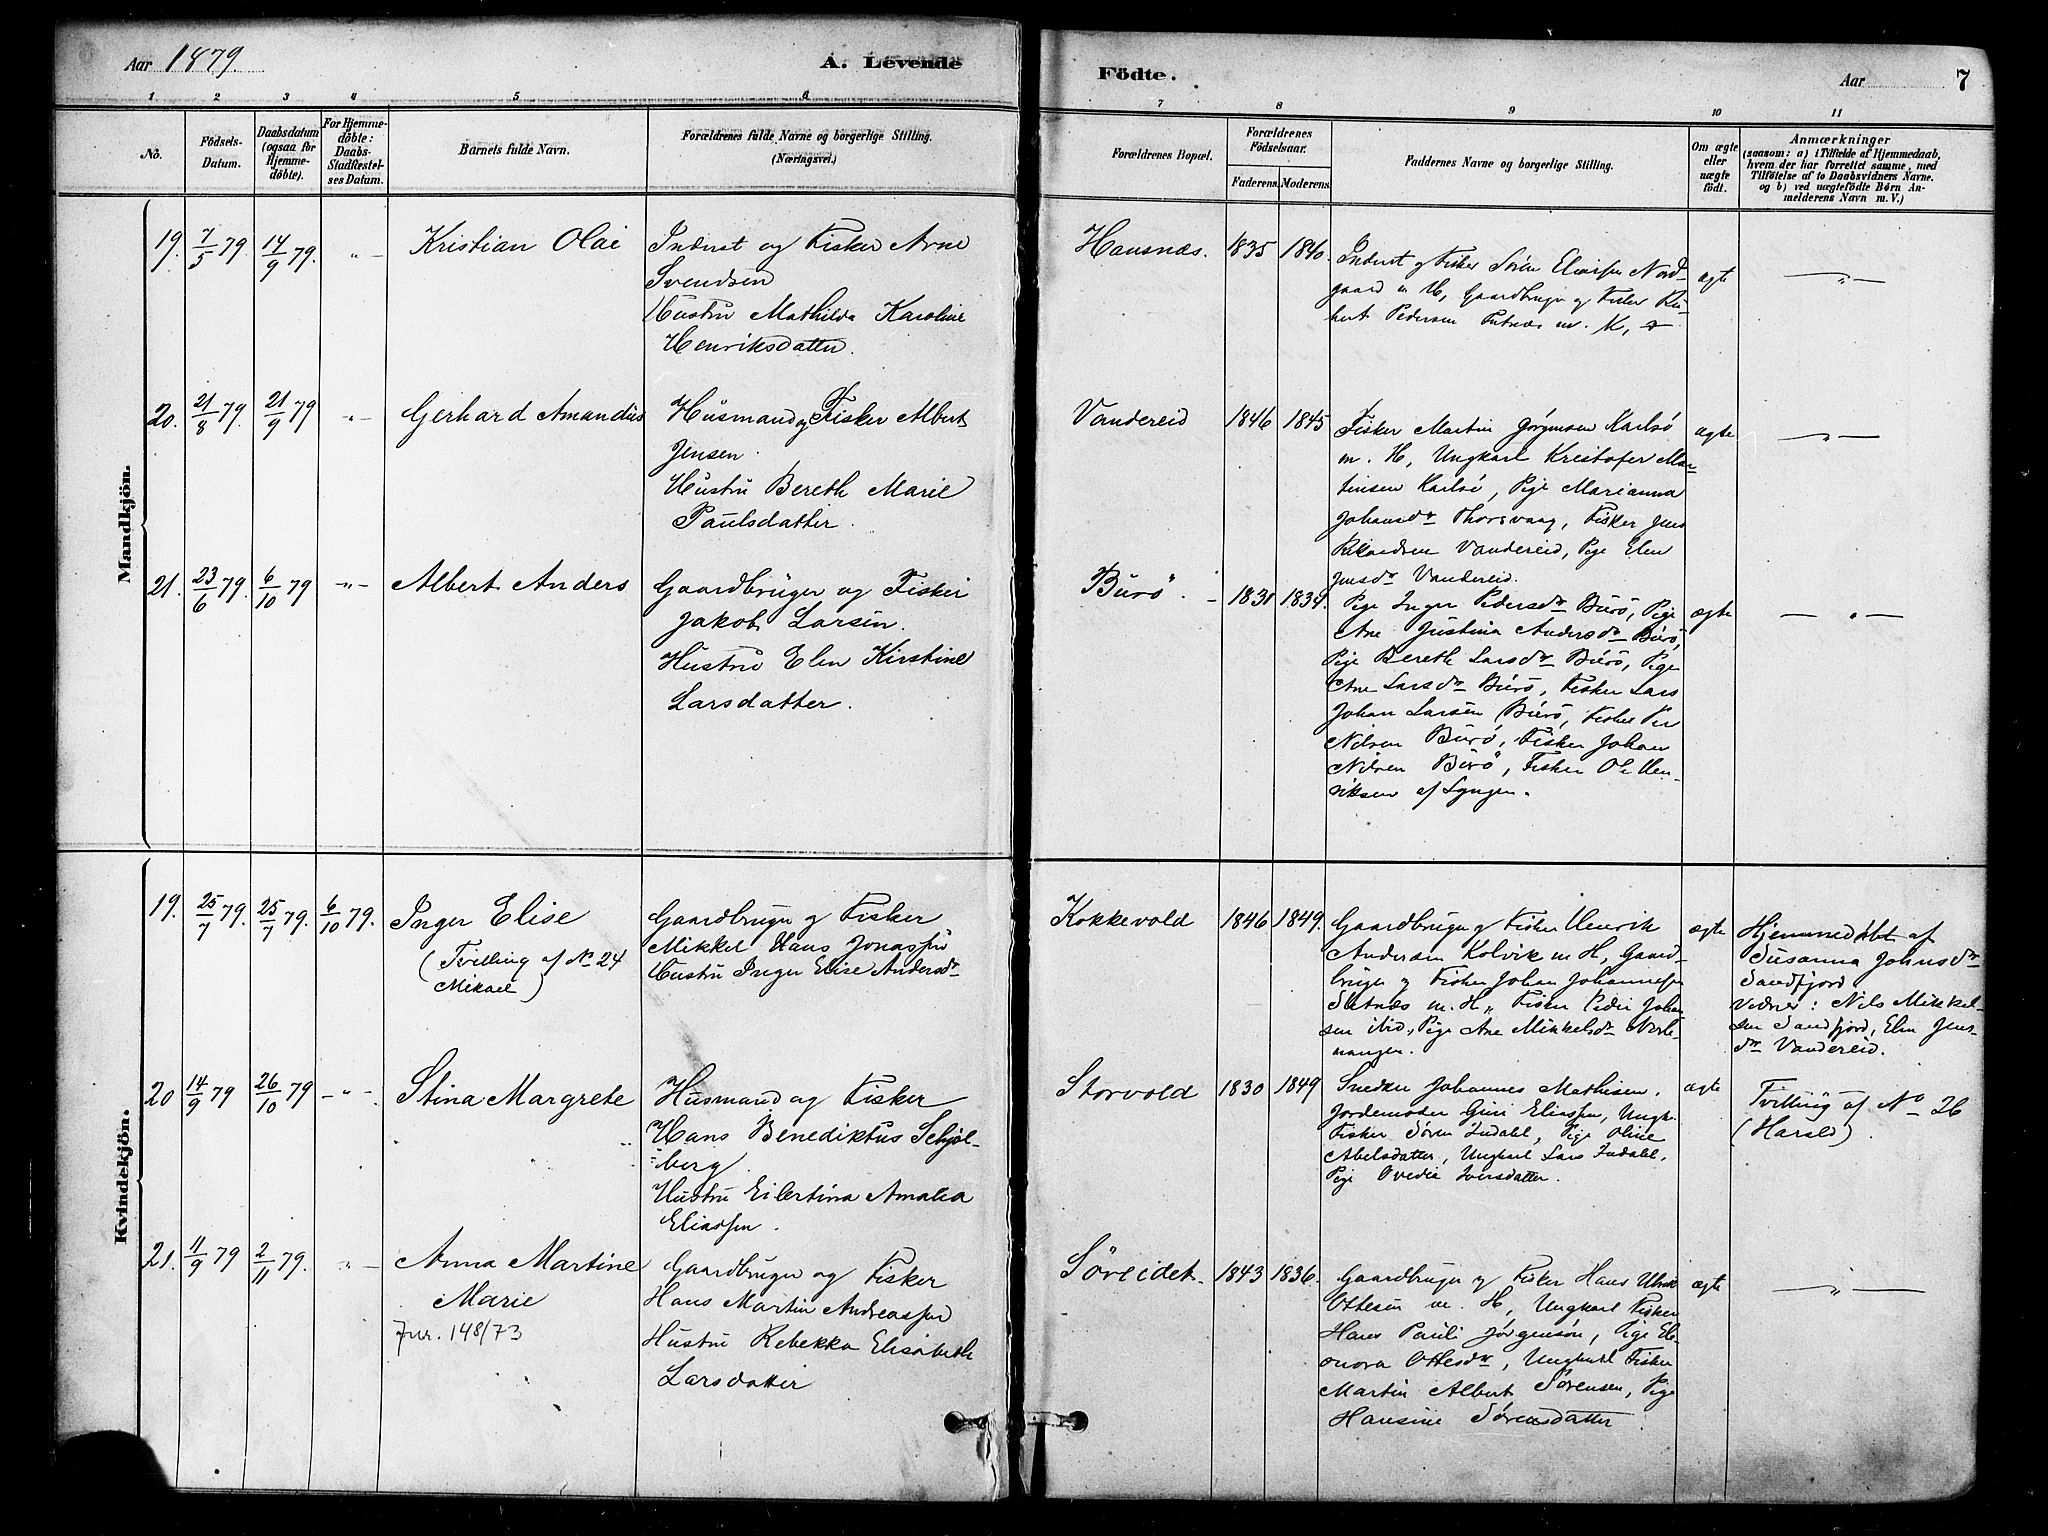 Aar 1879.
A. Levende
Födte.
Aar
7
1.
2
3
4
5
6
7
8
9
10
11
No.
Födsels-
Datum.
Daabsdatum
(ogsaa for
Hjemme-
døbte).
For Hjemme-
døbte:
Daabs-
Stadfæstel-
ses Datum.
Barnets fulde Navn.
Forældrenes fulde Navne og borgerlige Stilling.
(Næringsvei.)
Forældrenes Bopæl.
Forældrenes
Fødselsaar.
Faderens.
Moderens.
Faddernes Navne og borgerlige Stilling.
Om ægte
eller
uægte
født.
Anmærkninger
(saasom: a) i Tilfælde af Hjemmedaab,
hvem der har forrettet samme, med
Tilføielse af to Daabsvidners Navne.
og b) ved uægtefødte Børn An-
melderens Navn m. V.)
Mandkjön.
19. 7/5 79. 14/9 79. -"- Kristian Olai
Inderst og Fisker Arne
Svendsen
Hustru Mathilda Karoline
Henriksdatter.
Hansnæs. 1835 1840.
Inderst og Fisker Sören Eliassen Nord-
gaard m H, Gaardbruger og Fisker
Pedersen m. K,
ægte
-"-
20. 21/8 79. 21/9 79 -"- Gerhard Amandus
Husmand og Fisker Albert
Jensen.
Hustru Bereth Marie
Paulsdatter.
Vandereid 1846 1845
Fisker Martin Jørgensen Karlsö
m. H, Ungkarl Kristofer Mar-
tinsen Karlsö, Pige Marianna
Johansdr Thorsvaag, Fisker Jens
Rikardsen Vandereid, Pige Elen
Jensdr Vandereid.
ægte
-"-
21. 23/6 79. 6/10 79 -"- Albert Anders
Gaardbruger og Fisker
Jakob Larsen.
Hustru Elen Kirstine
Larsdatter.
Burö. 1831 1834.
Pige Inger Pedersdr Burö, Pige
Ane Justina Andersdr Burö,
Pige Bereth Larsdr Burö, Pige
Ane Larsdr Burö, Fisker Lars
Johan Larsen Burö, Fisker Per
Nilsen Burö, Fisker Johan
Nilsen Burö, Fisker Ole Hen-
riksen af Lyngen.
ægte
-"-
Kvindekjön.
19. 25/7 79. 25/7 79. 6/10 79. Inger Elise
(Tvilling af No 24
Mikael)
Gaardbruger og Fisker
Mikkel Hans Jonassen
Hustru Inger Elise Andersdr
Kokkevold 1846 1849.
Gaardbruger og Fisker Henrik
Andersen Kolvik m H, Gaard-
bruger og Fisker Johan Johannesen
m. H, Fisker Peder Johan-
sen ibid, Pige Ane Mikkelsdr
nangen.
ægte
Hjemmedøbt af
Susanna Johnsdr
Sandfjord
Vidner: Nils Mikkel-
sen Sandfjord, Elen Jens-
dr Vandereid.
20 14/9 79 26/10 79 -"- Stina Margrete
Husmand og Fisker
Hans Benediktus Schjøl-
berg.
Hustru Eilertina Amalia
Eliassen.
Storvold 1830 1849
Snedker Johannes Mathisen,
Jordemoder Guri Eliassen, Ungk.
Fisker Sören Indahl, Pige Oline
Abelsdatter, Ungkarl Lars Indahl,
Pige Ovedie Iversdatter.
ægte
Tvilling af No 26
(Harald).
21. 11/9 79 2/11 79. -"- Anna Martine
Marie
Jur. 148/73
Gaardbruger og Fisker
Hans Martin Andreassen
Hustru Rebekka Elisabeth
Larsdatter
Söreidet. 1843 1836.
Gaardbruger og Fisker Hans Ulrik
Ottesen m. H, Ungkarl Fisker
Hans Pauli Jørgensen, Pige Ele-
onora Ottesdr, Ungkarl Fisker
Martin Albert Sørensen, Pige
Hansine Sørensdatter
ægte
-"-